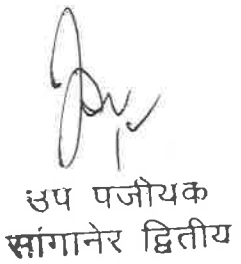 उप पजीयक
सांगानेर द्वितीय